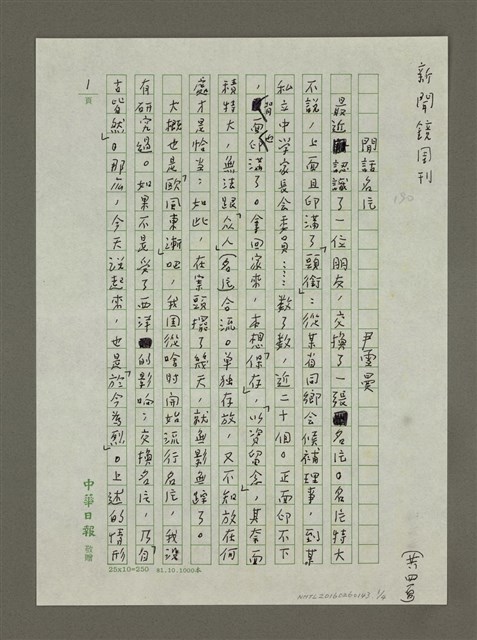 新聞鏡周刊
閒話名片　尹雪曼
最近認識了一位朋友，交換了一張名片。名片特大
不說，上面且印滿了「頭銜」：從某省同鄉會候補理事，到某
私立中学家長会委員……数了数，近二十個。正面印不下
，背面也印滿了。拿回家來，本想「保存」，以資留念，其奈面
積特大，無法跟「众人」（名片）合流。单独存放，又不知放在何
處才是恰当；如此，在案頭擺了幾天，就無影無踪了。
大概也是「欧風東漸」吧，我国從啥时開始流行名片，我没
有研究過。如果不是受了西洋的影响；交換名片，乃「自
古皆然」。那麽，今天說起來，也是「於今為烈」。上述的情形
1
頁
中華日報 敬贈
25x10=250 81.10.1000本
（共四頁）
190
NMTL20160260143 1/4